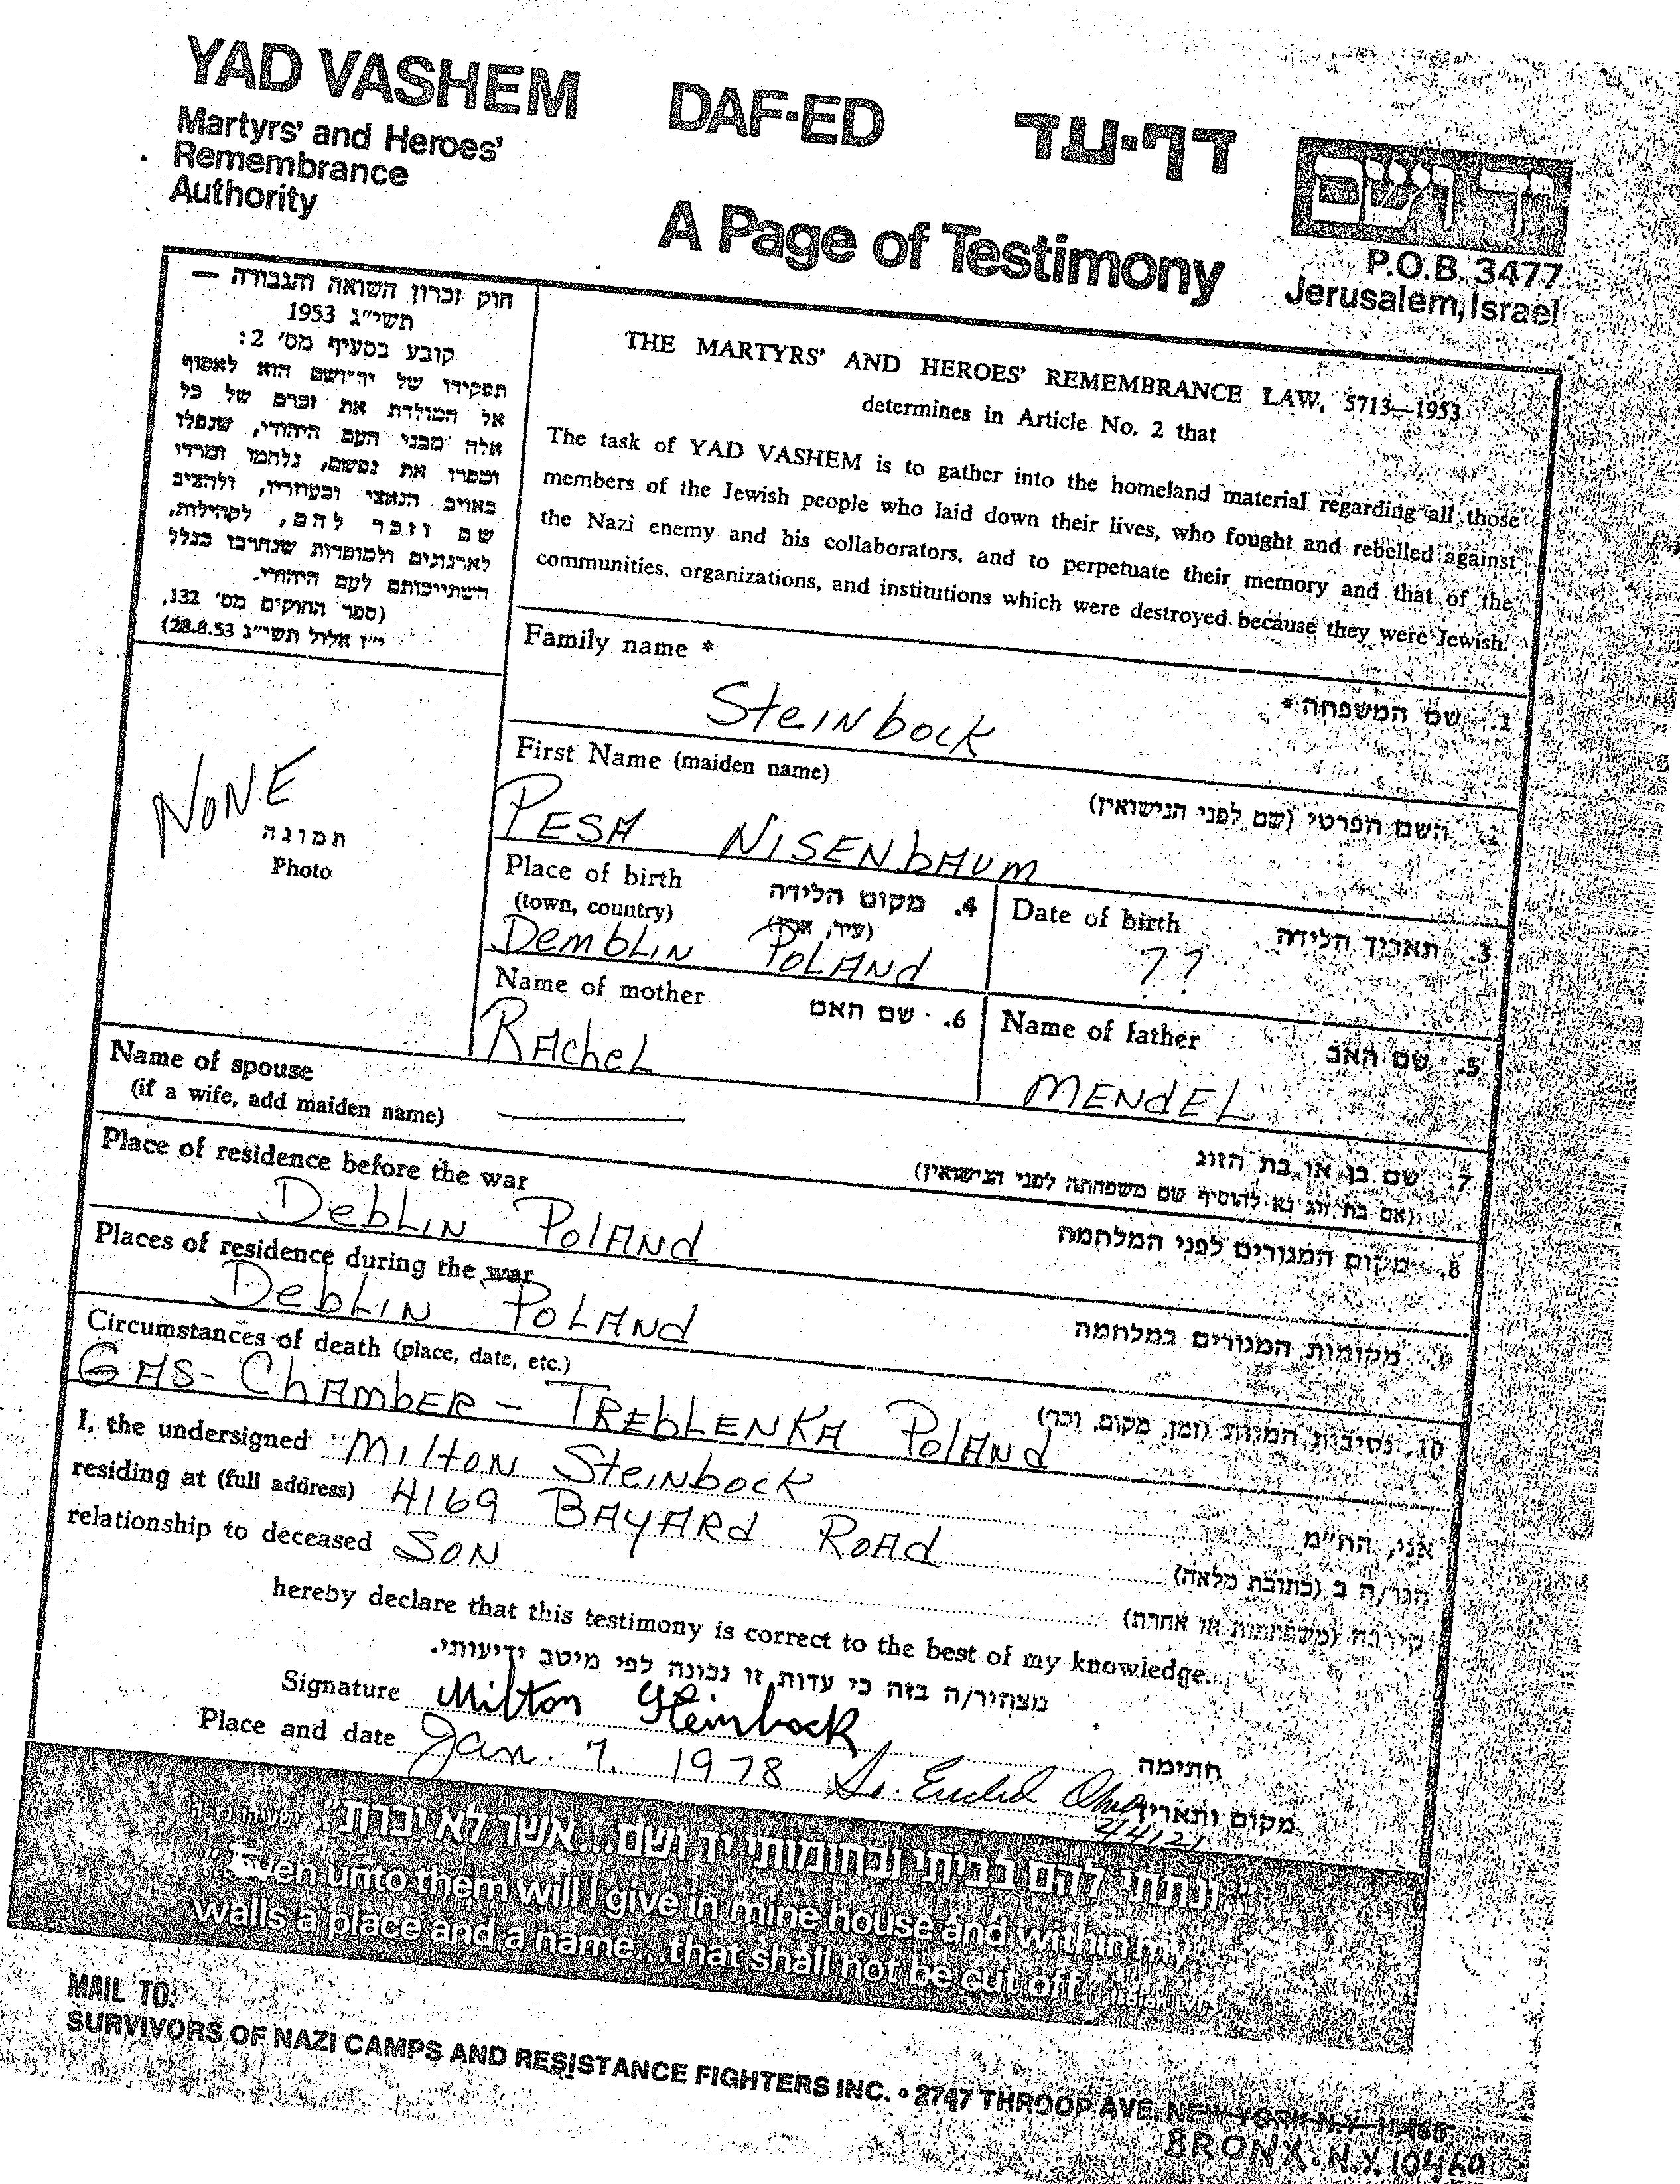 YAD VASHEM
Martyrs' and Heroes'
Remembrance
Authority
DAF-ED
דף-עד
A Page of Testimony
יד ושם
P.O.B. 3477
Jerusalem, Israel
חוק זכרון השואה והגבורה —
תשי"ג 1953
קובע בסעיף מס' 2:
תפקידו של יד-ושם הוא לאסוף
אל המולדת את זכרם של כל
אלה מבני העם היהודי, שנפלו
ומסרו את נפשם, נלחמו ומרדו
באויב הנאצי ובעוזריו, ולהציב
שם וזכר להם, לקהילות,
לארגונים ולמוסדות שנחרבו בגלל
השתייכותם לעם היהודי.
(ספר החוקים מס' 132,
י"ז אלול תשי"ג 28.8.53)
THE MARTYRS' AND HEROES' REMEMBRANCE LAW, 5713—1953
determines in Article No. 2 that
The task of YAD VASHEM is to gather into the homeland material regarding all those
members of the Jewish people who laid down their lives, who fought and rebelled against
the Nazi enemy and his collaborators, and to perpetuate their memory and that of the
communities, organizations, and institutions which were destroyed because they were Jewish.
NONE
תמונה
Photo
Family name * 1. שם המשפחה *
SteINbock
First Name (maiden name) 2. השם הפרטי (שם לפני הנישואין)
PESA NISENbAUM
Place of birth 4. מקום הלידה
(town, country) (עיר, ארץ)
DembLIN PoLANd
Date of birth 3. תאריך הלידה
??
Name of mother 6. שם האם
RAcheL
Name of father 5. שם האב
MENdEL
Name of spouse 7. שם בן או בת הזוג
(if a wife, add maiden name) — (אם בת זוג נא להוסיף שם משפחתה לפני הנישואין)
Place of residence before the war 8. מקום המגורים לפני המלחמה
DebLIN PolANd
Places of residence during the war 9. מקומות המגורים במלחמה
DebLIN PoLANd
Circumstances of death (place, date, etc.) 10. נסיבות המוות (זמן, מקום, וכו')
GAS- ChAmbER - TREbLENKA PolANd
I, the undersigned MIltON SteINbock אני, הח"מ
residing at (full address) 4169 BAyARd RoAd הגר/ה ב (כתובת מלאה)
relationship to deceased SON קירבה (משפחתית או אחרת)
hereby declare that this testimony is correct to the best of my knowledge.
מצהיר/ה בזה כי עדות זו נכונה לפי מיטב ידיעותי.
Signature Milton Steinbock חתימה
Place and date Jan. 7, 1978 So. Euclid Ohio מקום ותאריך
44121
"...ונתתי להם בביתי ובחומותי יד ושם...אשר לא יכרת"
"...Even unto them will I give in mine house and within my
walls a place and a name...that shall not be cut off"
MAIL TO:
SURVIVORS OF NAZI CAMPS AND RESISTANCE FIGHTERS INC. • 2747 THROOP AVE. NEW YORK N.Y.
BRONX. N.Y. 10469